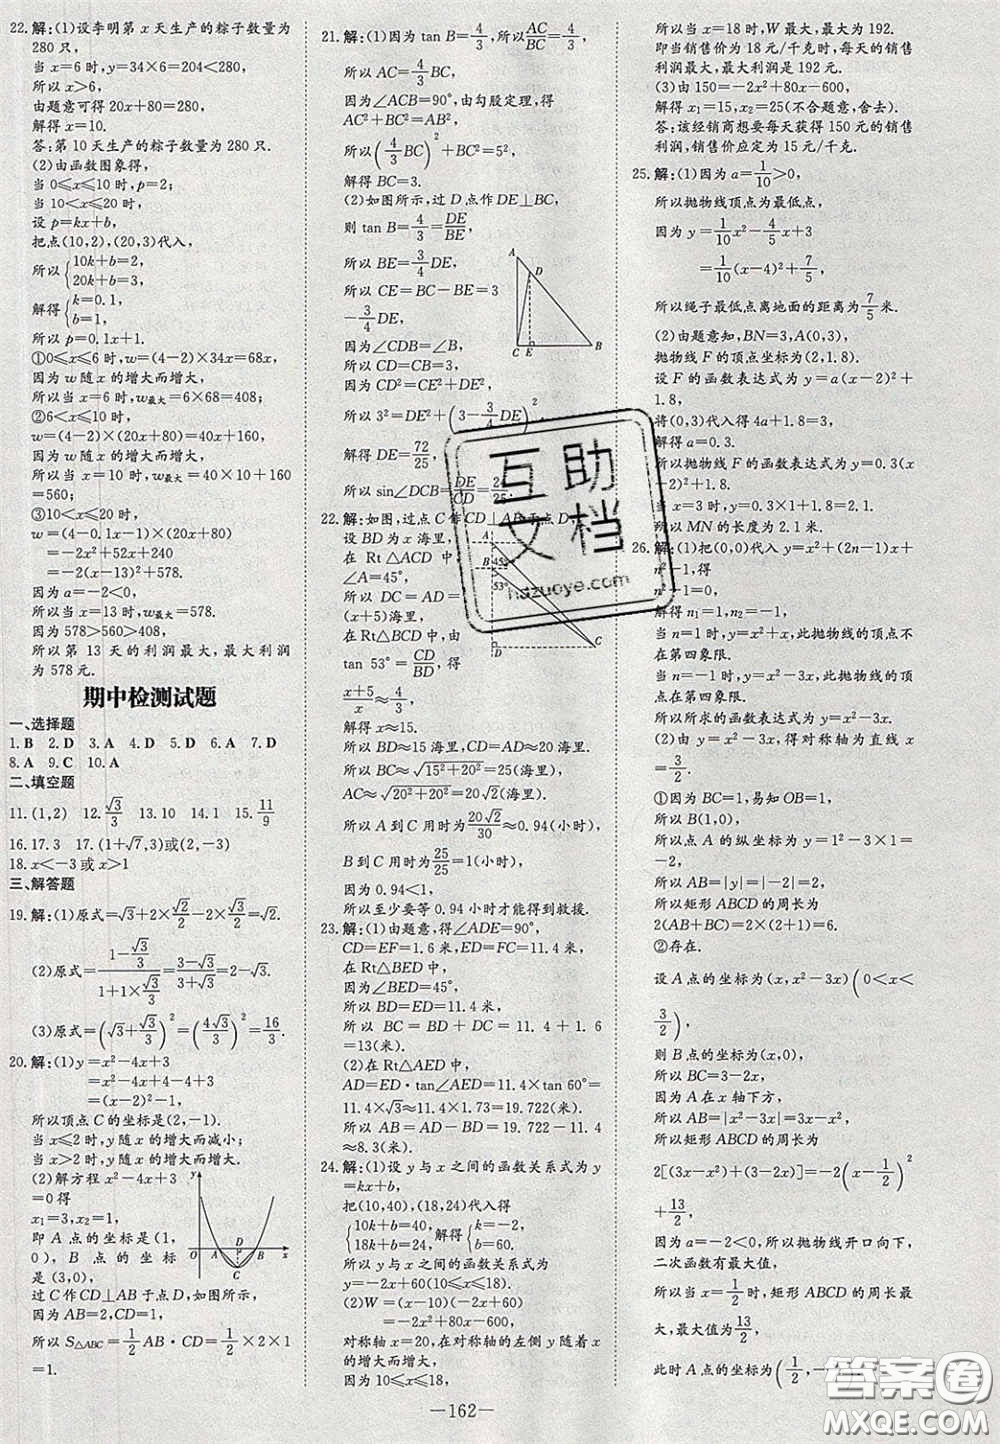 22.解:(1)设李明第x天生产的粽子数量为
280只,
当x=6时,y=34×6=204<280,
所以x>6,
由题意可得20x+80=280,
解得x=10.
答:第10天生产的粽子数量为280只.
(2)由函数图象得,
当0≤x≤10时,p=2;
当10<x≤20时,
设p=kx+b,
把点(10,2),(20,3)代入,
所以{10k+b=2, 20k+b=3,
解得{k=0.1, b=1,
所以p=0.1x+1.
①0≤x≤6时,w=(4-2)×34x=68x,
因为w随x的增大而增大,
所以当x=6时,w最大=6×68=408;
②6<x≤10时,
w=(4-2)×(20x+80)=40x+160,
因为w随x的增大而增大,
所以当x=10时,w最大=40×10+160
=560;
③10<x≤20时,
w=(4-0.1x-1)×(20x+80)
=-2x²+52x+240
=-2(x-13)²+578,
因为a=-2<0,
所以当x=13时,w最大=578.
因为578>560>408,
所以第13天的利润最大,最大利润
为578元.
期中检测试题
一、选择题
1.B 2.D 3.A 4.D 5.D 6.A 7.D
8.A 9.C 10.A
二、填空题
11.(1,2) 12.√3/3 13.10 14.1 15.11/9
16.17.3 17.(1+√7,3)或(2,-3)
18.x<-3或x>1
三、解答题
19.解:(1)原式=√3+2×√2/2-2×√3/2=√2.
(2)原式=(1-√3/3)/(1+1×√3/3)=(3-√3)/(3+√3)=2-√3.
(3)原式=(√3+√3/3)²=(4√3/3)²=16/3.
20.解:(1)y=x²-4x+3
=x²-4x+4-4+3
=(x-2)²-1,
所以顶点C的坐标是(2,-1),
当x≤2时,y随x的增大而减小;
当x>2时,y随x的增大而增大.
(2)解方程x²-4x+3
=0得
x₁=3,x₂=1,
即A点的坐标是(1,
0),B点的坐标
是(3,0),
过C作CD⊥AB于点D,如图所示,
因为AB=2,CD=1,
所以S△ABC=1/2AB·CD=1/2×2×1
=1.
y
O A D B x
C
21.解:(1)因为tan B=4/3,所以AC/BC=4/3,
所以AC=4/3BC,
因为∠ACB=90°,由勾股定理,得
AC²+BC²=AB²,
所以(4/3BC)²+BC²=5²,
解得BC=3.
(2)如图所示,过D点作DE⊥BC,
则tan B=4/3=DE/BE,
所以BE=3/4DE,
所以CE=BC-BE=3
-3/4DE,
因为∠CDB=∠BCD,
所以CD=CB=3,
因为CD²=CE²+DE²,
所以3²=DE²+(3-3/4DE)²
解得DE=72/25,
所以sin∠DCB=DE/CD=24/25.
A
D
C E B
22.解:如图,过点C作CD⊥AB于点D,
设BD为x海里,
在Rt△ACD中,
∠A=45°,
所以DC=AD=
(x+5)海里,
在Rt△BCD中,
tan 53°=CD/BD,得
(x+5)/x≈4/3,
解得x≈15.
所以BD≈15海里,CD=AD≈20海里.
所以BC≈√(15²+20²)=25(海里),
AC≈√(20²+20²)=20√2(海里),
所以A到C用时为20√2/30≈0.94(小时),
B到C用时为25/25=1(小时),
因为0.94<1,
所以至少要等0.94小时才能得到救援.
A
45°
B
53°
D C
23.解:(1)由题意,得∠ADE=90°,
CD=EF=1.6米,ED=FC=11.4米,
在Rt△BED中,
因为∠BED=45°,
所以BD=ED=11.4米,
所以BC=BD+DC=11.4+1.6
=13(米).
(2)在Rt△AED中,
AD=ED·tan∠AED=11.4×tan 60°=
11.4×√3≈11.4×1.73=19.722(米),
所以AB=AD-BD=19.722-11.4
≈8.3(米).
24.解:(1)设y与x之间的函数关系式为y
=kx+b,
把(10,40),(18,24)代入得
{10k+b=40, 18k+b=24,解得{k=-2, b=60,
所以y与x之间的函数关系式为
y=-2x+60(10≤x≤18).
(2)W=(x-10)(-2x+60)
=-2x²+80x-600,
对称轴x=20,在对称轴的左侧y随着x
的增大而增大,
因为10≤x≤18,
所以当x=18时,W最大,最大为192.
即当销售价为18元/千克时,每天的销售
利润最大,最大利润是192元.
(3)由150=-2x²+80x-600,
解得x₁=15,x₂=25(不合题意,舍去).
答:该经销商想要每天获得150元的销售
利润,销售价应定为15元/千克.
25.解:(1)因为a=1/10>0,
所以抛物线顶点为最低点,
因为y=1/10x²-4/5x+3
=1/10(x-4)²+7/5,
所以绳子最低点离地面的距离为7/5米.
(2)由题意知,BN=3,A(0,3),
抛物线F的顶点坐标为(2,1.8).
设F的函数表达式为y=a(x-2)²+
1.8,
将(0,3)代入得4a+1.8=3,
解得a=0.3.
所以抛物线F的函数表达式为y=0.3(x
-2)²+1.8.
当x=3时,y=0.3×1+1.8=2.1,
所以MN的长度为2.1米.
26.解:(1)把(0,0)代入y=x²+(2n-1)x+
n²-1,得
n²-1=0,
解得n₁=1,n₂=-1.
当n=1时,y=x²+x,此抛物线的顶点不
在第四象限.
当n=-1时,y=x²-3x,此抛物线的顶
点在第四象限.
所以所求的函数表达式为y=x²-3x.
(2)由y=x²-3x,得对称轴为直线x=
3/2.
①因为BC=1,易知OB=1,
所以B(1,0),
所以点A的纵坐标为y=1²-3×1=
-2.
所以AB=|y|=|-2|=2.
所以矩形ABCD的周长为
2(AB+BC)=2×(2+1)=6.
②存在.
设A点的坐标为(x,x²-3x)(0<x<
3/2),
则B点的坐标为(x,0),
所以BC=3-2x,
因为A在x轴下方,
所以AB=|x²-3x|=3x-x²,
所以矩形ABCD的周长为
2[(3x-x²)+(3-2x)]=-2(x-1/2)²
+13/2,
因为a=-2<0,所以抛物线开口向下,
二次函数有最大值,
所以当x=1/2时,矩形ABCD的周长最
大,最大值为13/2.
此时A点的坐标为(1/2,
—162—
互助文档
hazuoye.com
答案圈
MXQE.COM